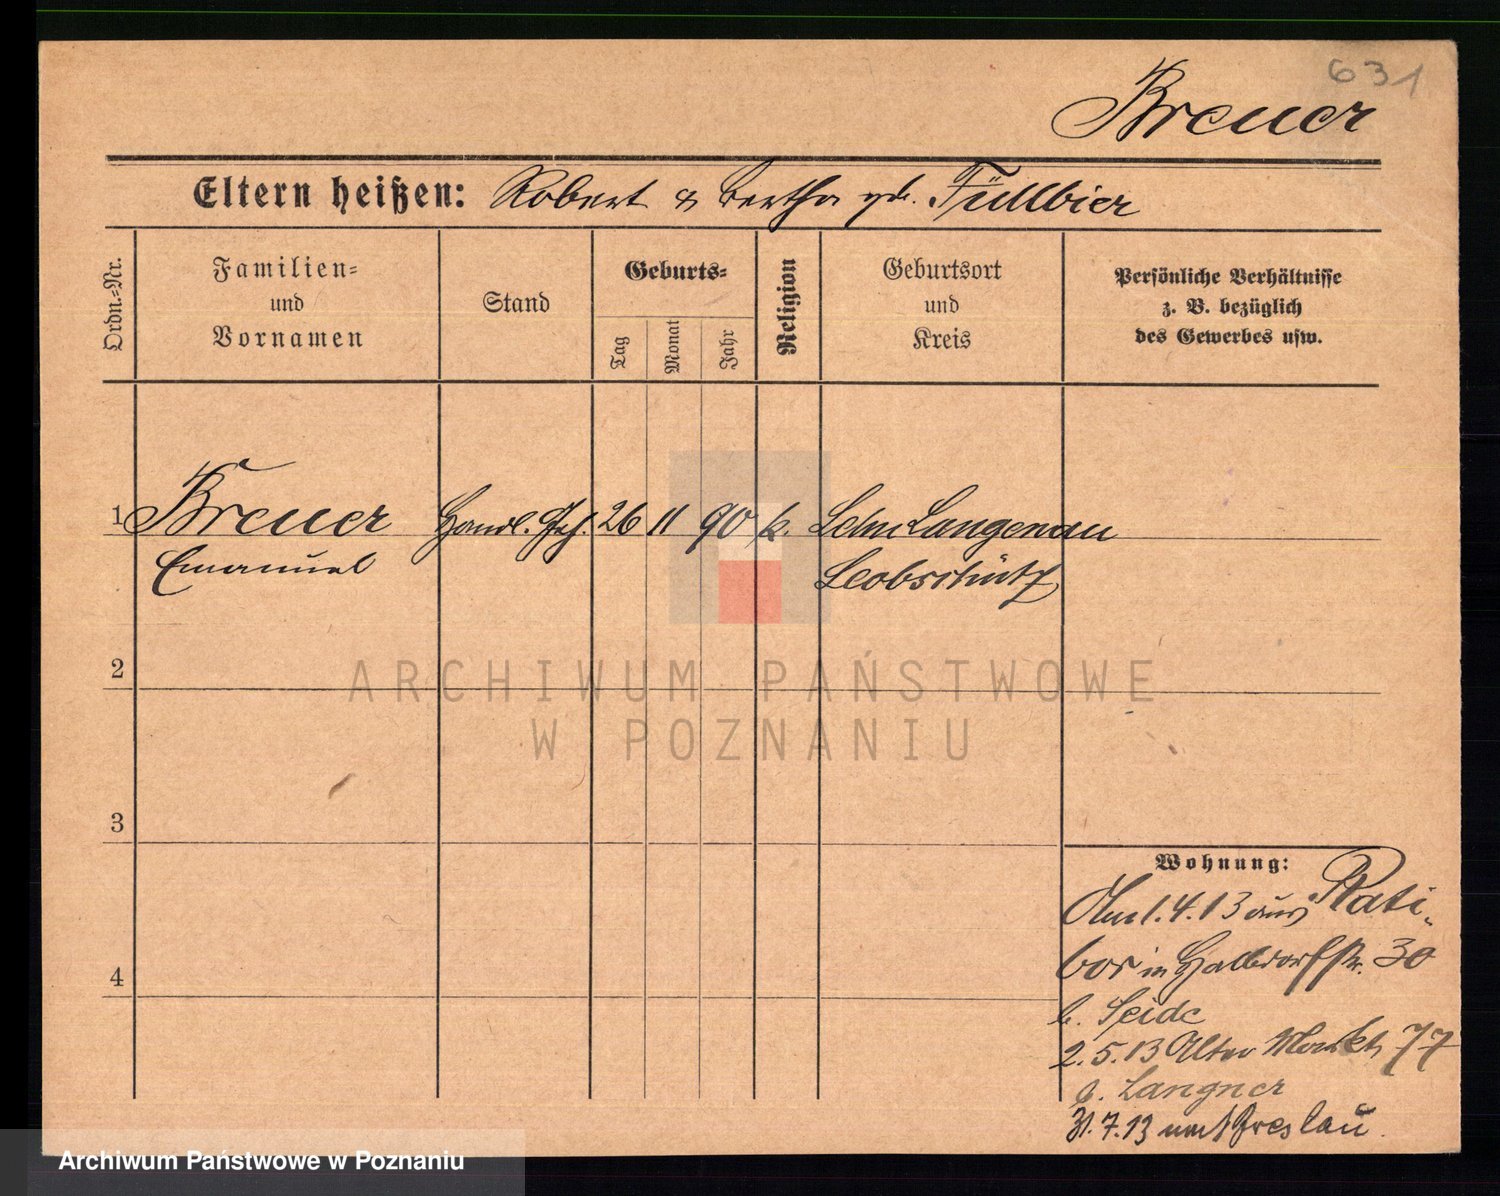 631
Breuer
Eltern heißen: Robert & Bertha geb. Füllbier
Ordn.=Nr.
Familien=
und
Vornamen
Stand
Geburts=
Tag
Monat
Jahr
Religion
Geburtsort
und
Kreis
Persönliche Verhältnisse
z. B. bezüglich
des Gewerbes usw.
1 Breuer Handl. Geh. 26 11 90 k. Langenau
Emanuel Leobschütz
2
ARCHIWUM PAŃSTWOWE
W POZNANIU
3
4
Wohnung:
Am 1.4.13 aus Rati-
bor in Halbdorfstr. 30
b. Seide
2.5.13 Alter Markt 77
b. Langner
31.7.13 nach Breslau.
Archiwum Państwowe w Poznaniu